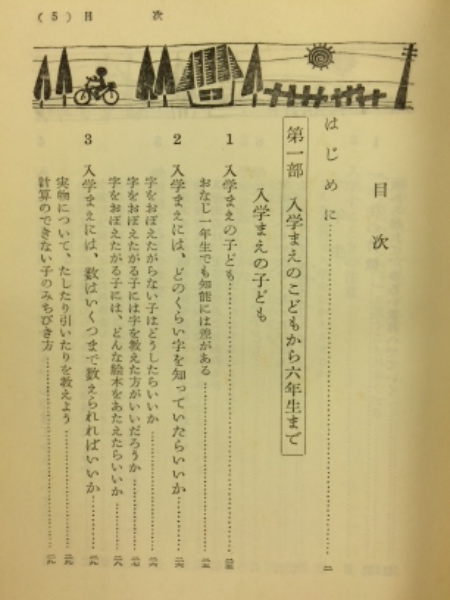 (5) 目 次
目 次
はじめに……………………一
第一部 入学まえのこどもから六年生まで
入学まえの子ども
1 入学まえの子ども……………………
おなじ一年生でも知能には差がある……………………
2 入学まえには、どのくらい字を知っていたらいいか……………………
字をおぼえたがらない子はどうしたらいいか……………………
字をおぼえたがる子には字を教えた方がいいだろうか……………………
字をおぼえたがる子には、どんな絵本をあたえたらいいか……………………
3 入学まえには、数はいくつまで数えられればいいか……………………
実物について、たしたり引いたりを教えよう……………………
計算のできない子のみちびき方……………………